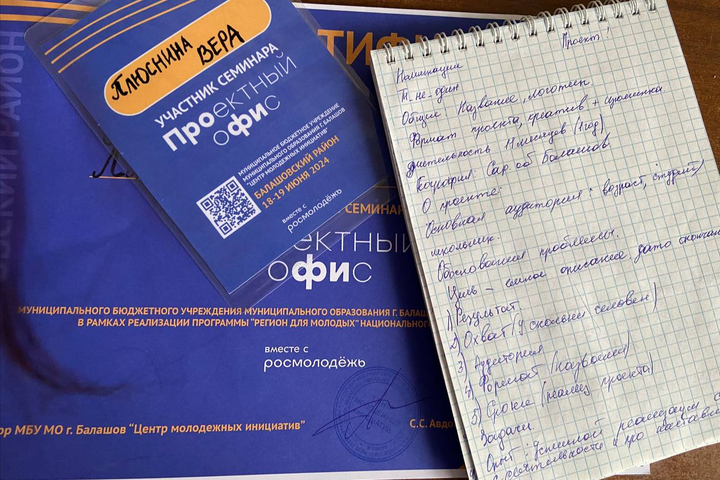 ПЛЮСНИНА
ВЕРА
УЧАСТНИК СЕМИНАРА
ПРОектный
оФИс
МУНИЦИПАЛЬНОЕ БЮДЖЕТНОЕ УЧРЕЖДЕНИЕ
МУНИЦИПАЛЬНОГО ОБРАЗОВАНИЯ Г. БАЛАШОВ
"ЦЕНТР МОЛОДЕЖНЫХ ИНИЦИАТИВ"
БАЛАШОВСКИЙ РАЙОН
18-19 ИЮНЯ 2024
вместе с
росмолодёжь
ТИФ
СКИЙ РАЙОН
СЕМИНАРА
ектный
оФИс
МУНИЦИПАЛЬНОГО БЮДЖЕТНОГО УЧРЕЖДЕНИЯ МУНИЦИПАЛЬНОГО ОБРАЗОВАНИЯ Г. БАЛАШ
В РАМКАХ РЕАЛИЗАЦИИ ПРОГРАММЫ "РЕГИОН ДЛЯ МОЛОДЫХ" НАЦИОНАЛЬНОГО
вместе с
росмолодёжь
ор МБУ МО г. Балашов "Центр молодежных инициатив"
С.С. Авдо
Проект!
Номинации
Т не один
Общие. Название, логотип
Формат проекта, креатив +
деятельность месяцев (1год)
География: Сар об Балашов
О проекте:
Основная аудитория: возраст, студент,
школьник.
Обоснование проблемы.
Цель – описание, дата окончан
1) Результат.
2) Охват (сколько человек)
3) Аудитория
4) Формат (название)
5) Сроки (реализ проекта)
Задачи.
Опыт: Успешной реализации
деятельности про наставн